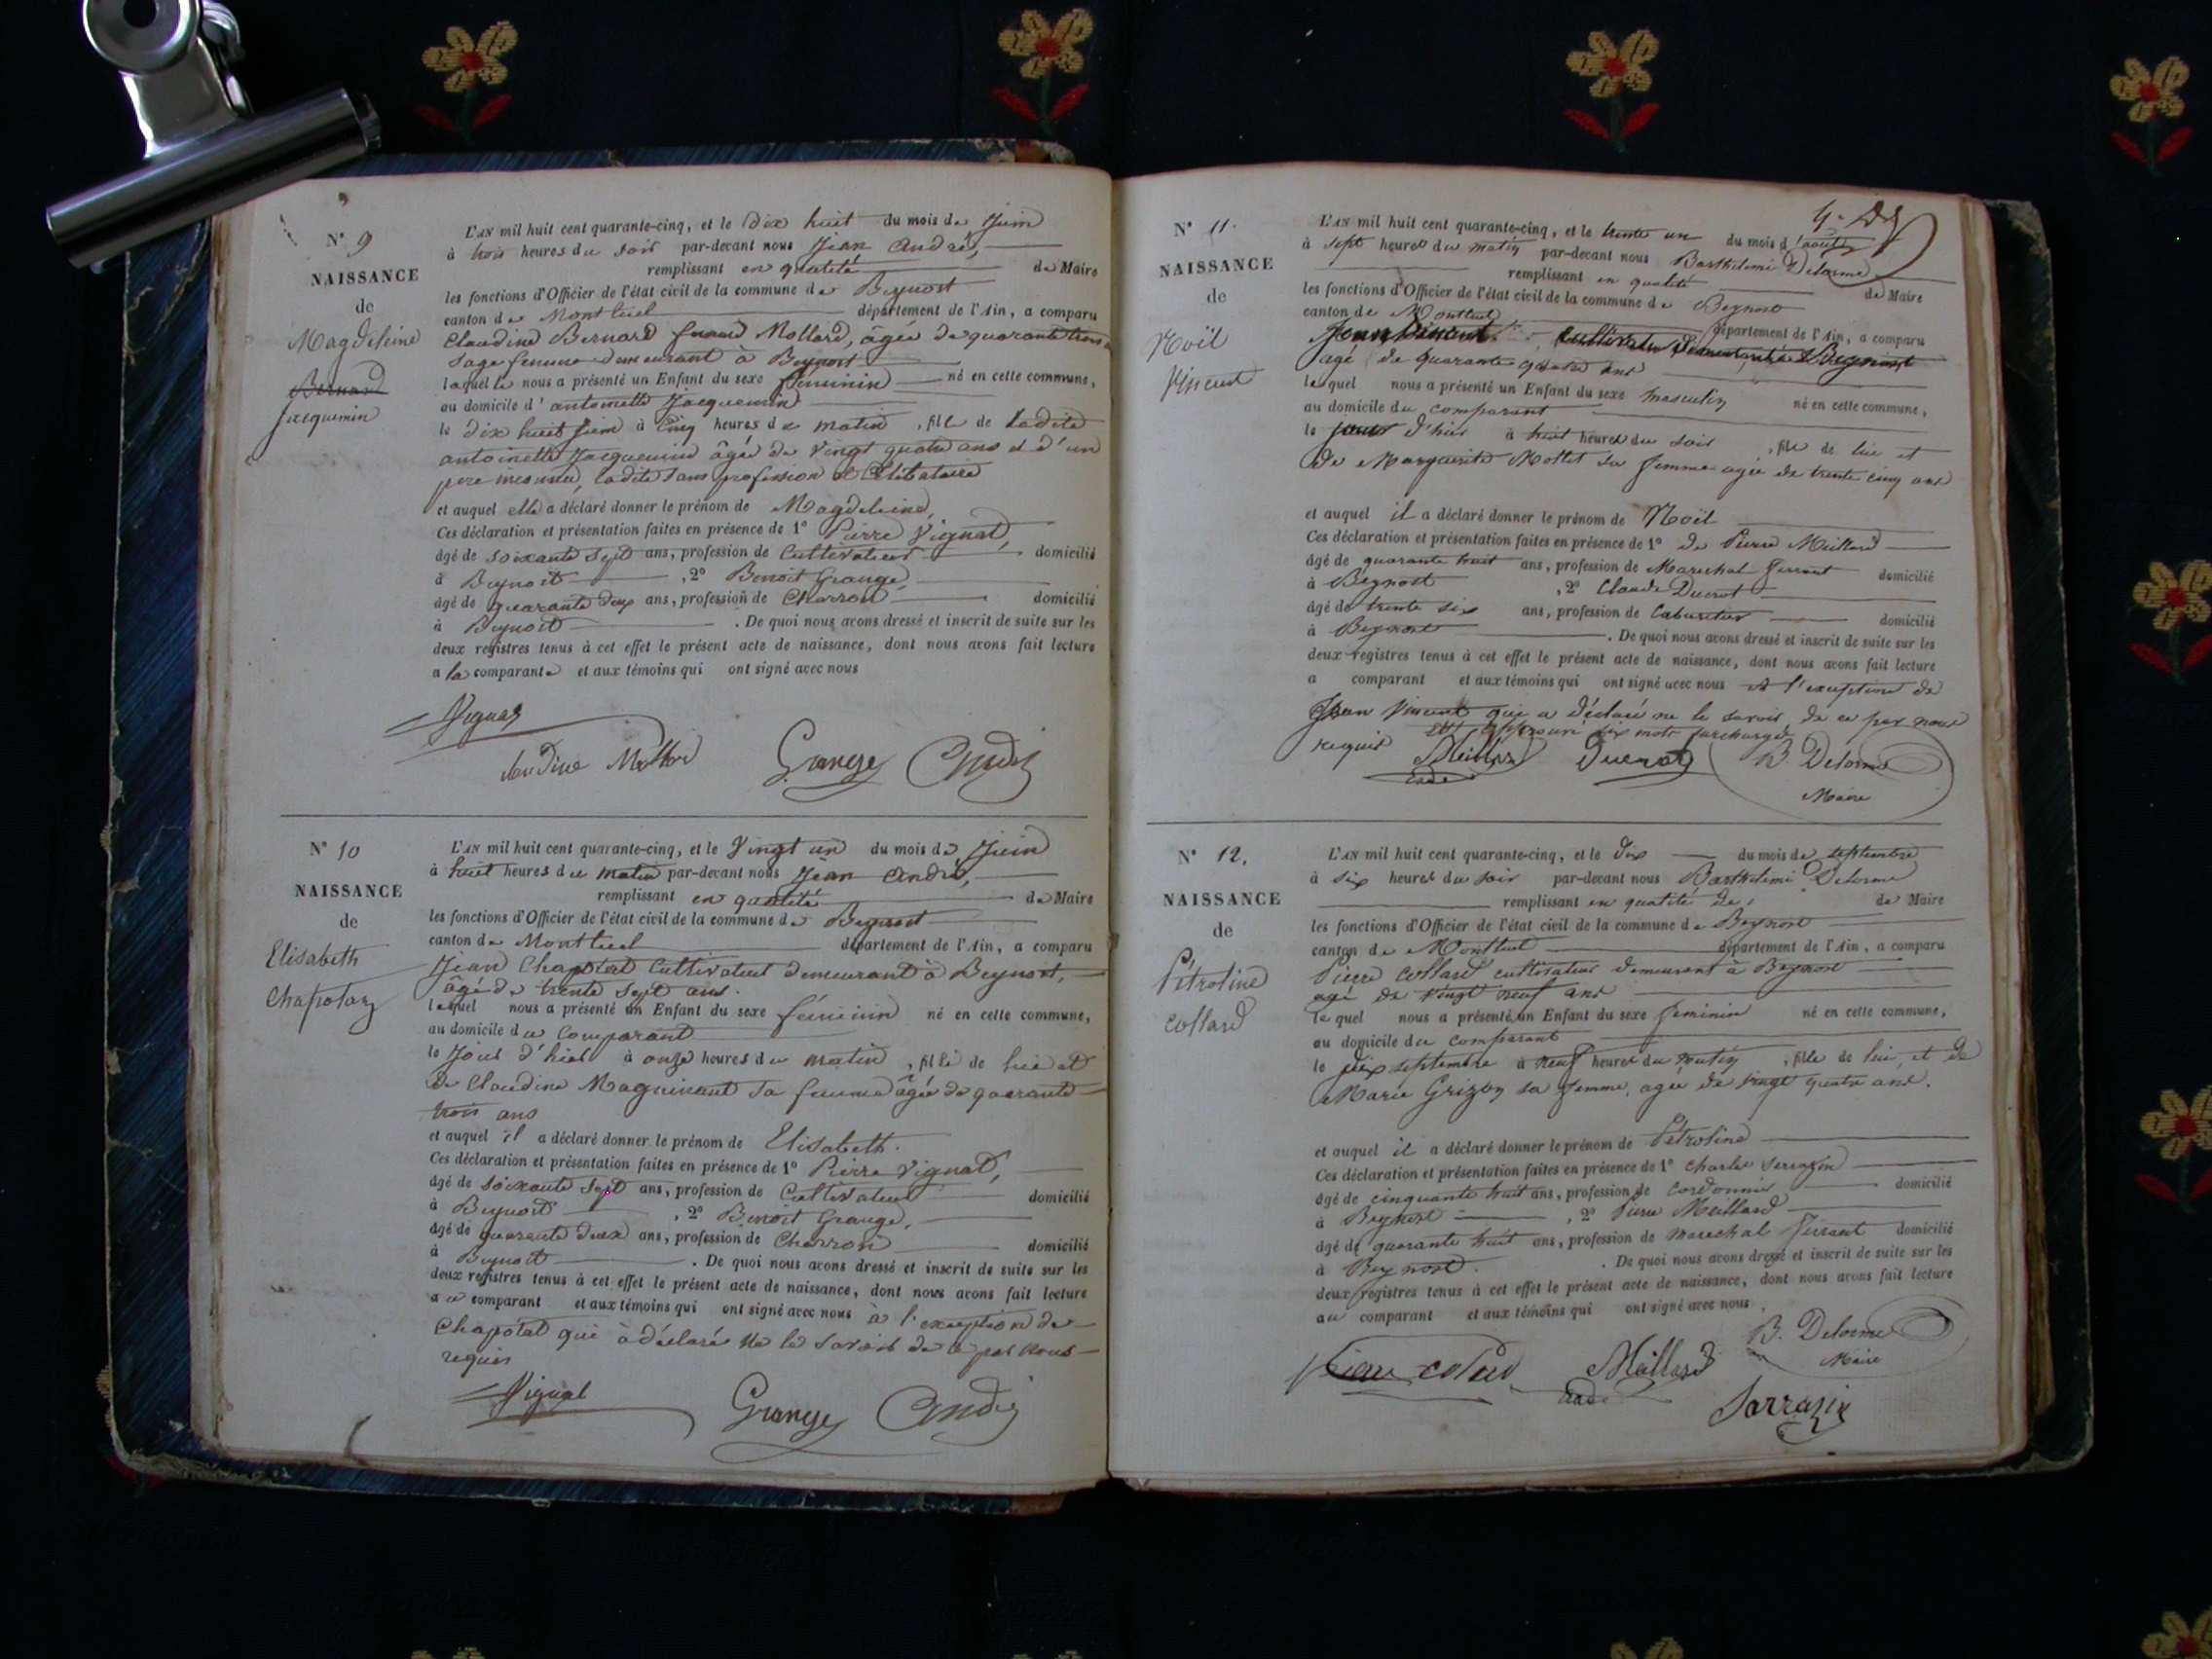 N° 9
NAISSANCE
de
Magdeleine
Bernard
Jacquemin
L'AN mil huit cent quarante-cinq, et le dix huit du mois de Juin
à trois heures du soir par-devant nous Jean André,
remplissant en qualité de Maire
les fonctions d'Officier de l'état civil de la commune de Beynost
canton de Montluel département de l'Ain, a comparu
Claudine Bernard femme Mollard, âgée de quarante trois
sage femme demeurant à Beynost
laquelle nous a présenté un Enfant du sexe féminin né en cette commune,
au domicile d'antoinette Jacquemin
le dix huit Juin à Cinq heures du matin, fille de Ladite
antoinette Jacquemin âgée de Vingt quatre ans et d'un
père inconnu, ladite sans profession et Célibataire
et auquel elle a déclaré donner le prénom de Magdeleine,
Ces déclaration et présentation faites en présence de 1° Pierre Vignat,
âgé de soixante sept ans, profession de Cultivateur domicilié
à Beynost, 2° Benoit Grange
âgé de quarante deux ans, profession de Charron domicilié
à Beynost. De quoi nous avons dressé et inscrit de suite sur les
deux registres tenus à cet effet le présent acte de naissance, dont nous avons fait lecture
a la comparante et aux témoins qui ont signé avec nous
Vignat
Claudine Mollard Grange André
N° 10
NAISSANCE
de
Elisabeth
Chapotat
L'AN mil huit cent quarante-cinq, et le Vingt un du mois de Juin
à huit heures du matin par-devant nous Jean André,
remplissant en qualité de Maire
les fonctions d'Officier de l'état civil de la commune de Beynost
canton de Montluel département de l'Ain, a comparu
Jean Chapotat Cultivateur demeurant à Beynost,
âgé de trente sept ans.
lequel nous a présenté un Enfant du sexe féminin né en cette commune,
au domicile du Comparant
le Jour d'hier à onze heures du matin, fille de lui et
de Claudine Magninant sa femme âgée de quarante
trois ans
et auquel il a déclaré donner le prénom de Elisabeth.
Ces déclaration et présentation faites en présence de 1° Pierre Vignat,
âgé de soixante sept ans, profession de Cultivateur domicilié
à Beynost, 2° Benoit Grange,
âgé de quarante deux ans, profession de Charron domicilié
à Beynost. De quoi nous avons dressé et inscrit de suite sur les
deux registres tenus à cet effet le présent acte de naissance, dont nous avons fait lecture
au comparant et aux témoins qui ont signé avec nous à l'exception de
Chapotat qui à déclaré ne le savoir de ce par nous
requis
Vignat Grange André
N° 11.
NAISSANCE
de
Noël
Vincent
L'AN mil huit cent quarante-cinq, et le trente un du mois d'août
à sept heures du matin par-devant nous Barthélemi Delorme
remplissant en qualité de Maire
les fonctions d'Officier de l'état civil de la commune de Beynost
canton de Montluel département de l'Ain, a comparu
Jean Vincent Cultivateur demeurant à Beynost
agé de quarante quatre ans
lequel nous a présenté un Enfant du sexe masculin né en cette commune,
au domicile du comparant
le jour d'hier à huit heures du soir, fils de lui et
de Marguerite Mollet sa femme agée de trente cinq ans
et auquel il a déclaré donner le prénom de Noël
Ces déclaration et présentation faites en présence de 1° de Pierre Meillard
âgé de quarante huit ans, profession de Marechal ferrant domicilié
à Beynost, 2° Claude Ducrot
âgé de trente six ans, profession de Cabaretier domicilié
à Beynost. De quoi nous avons dressé et inscrit de suite sur les
deux registres tenus à cet effet le présent acte de naissance, dont nous avons fait lecture
a comparant et aux témoins qui ont signé avec nous à l'exception de
Jean Vincent qui a déclaré ne le savoir de ce par nous
six mots surchargés
requis Meillard Ducrot B. Delorme
Maire
N° 12.
NAISSANCE
de
Pétroline
Collard
L'AN mil huit cent quarante-cinq, et le dix du mois de septembre
à six heures du soir par-devant nous Barthélemi Delorme
remplissant en qualité de de Maire
les fonctions d'Officier de l'état civil de la commune de Beynost
canton de Montluel département de l'Ain, a comparu
Pierre Collard cultivateur demeurant à Beynost
agé de vingt neuf ans
lequel nous a présenté un Enfant du sexe feminin né en cette commune,
au domicile du comparant
le dix septembre à neuf heures du matin, fille de lui et de
Marie Grizon sa femme, agée de vingt quatre ans.
et auquel il a déclaré donner le prénom de Pétroline
Ces déclaration et présentation faites en présence de 1° Charles Serrazin
âgé de cinquante huit ans, profession de cordonnier domicilié
à Beynost, 2° Pierre Meillard
âgé de quarante huit ans, profession de marechal ferrant domicilié
à Beynost. De quoi nous avons dressé et inscrit de suite sur les
deux registres tenus à cet effet le présent acte de naissance, dont nous avons fait lecture
au comparant et aux témoins qui ont signé avec nous.
B. Delorme
Maire
Pierre colard Meillard
Sarrazin